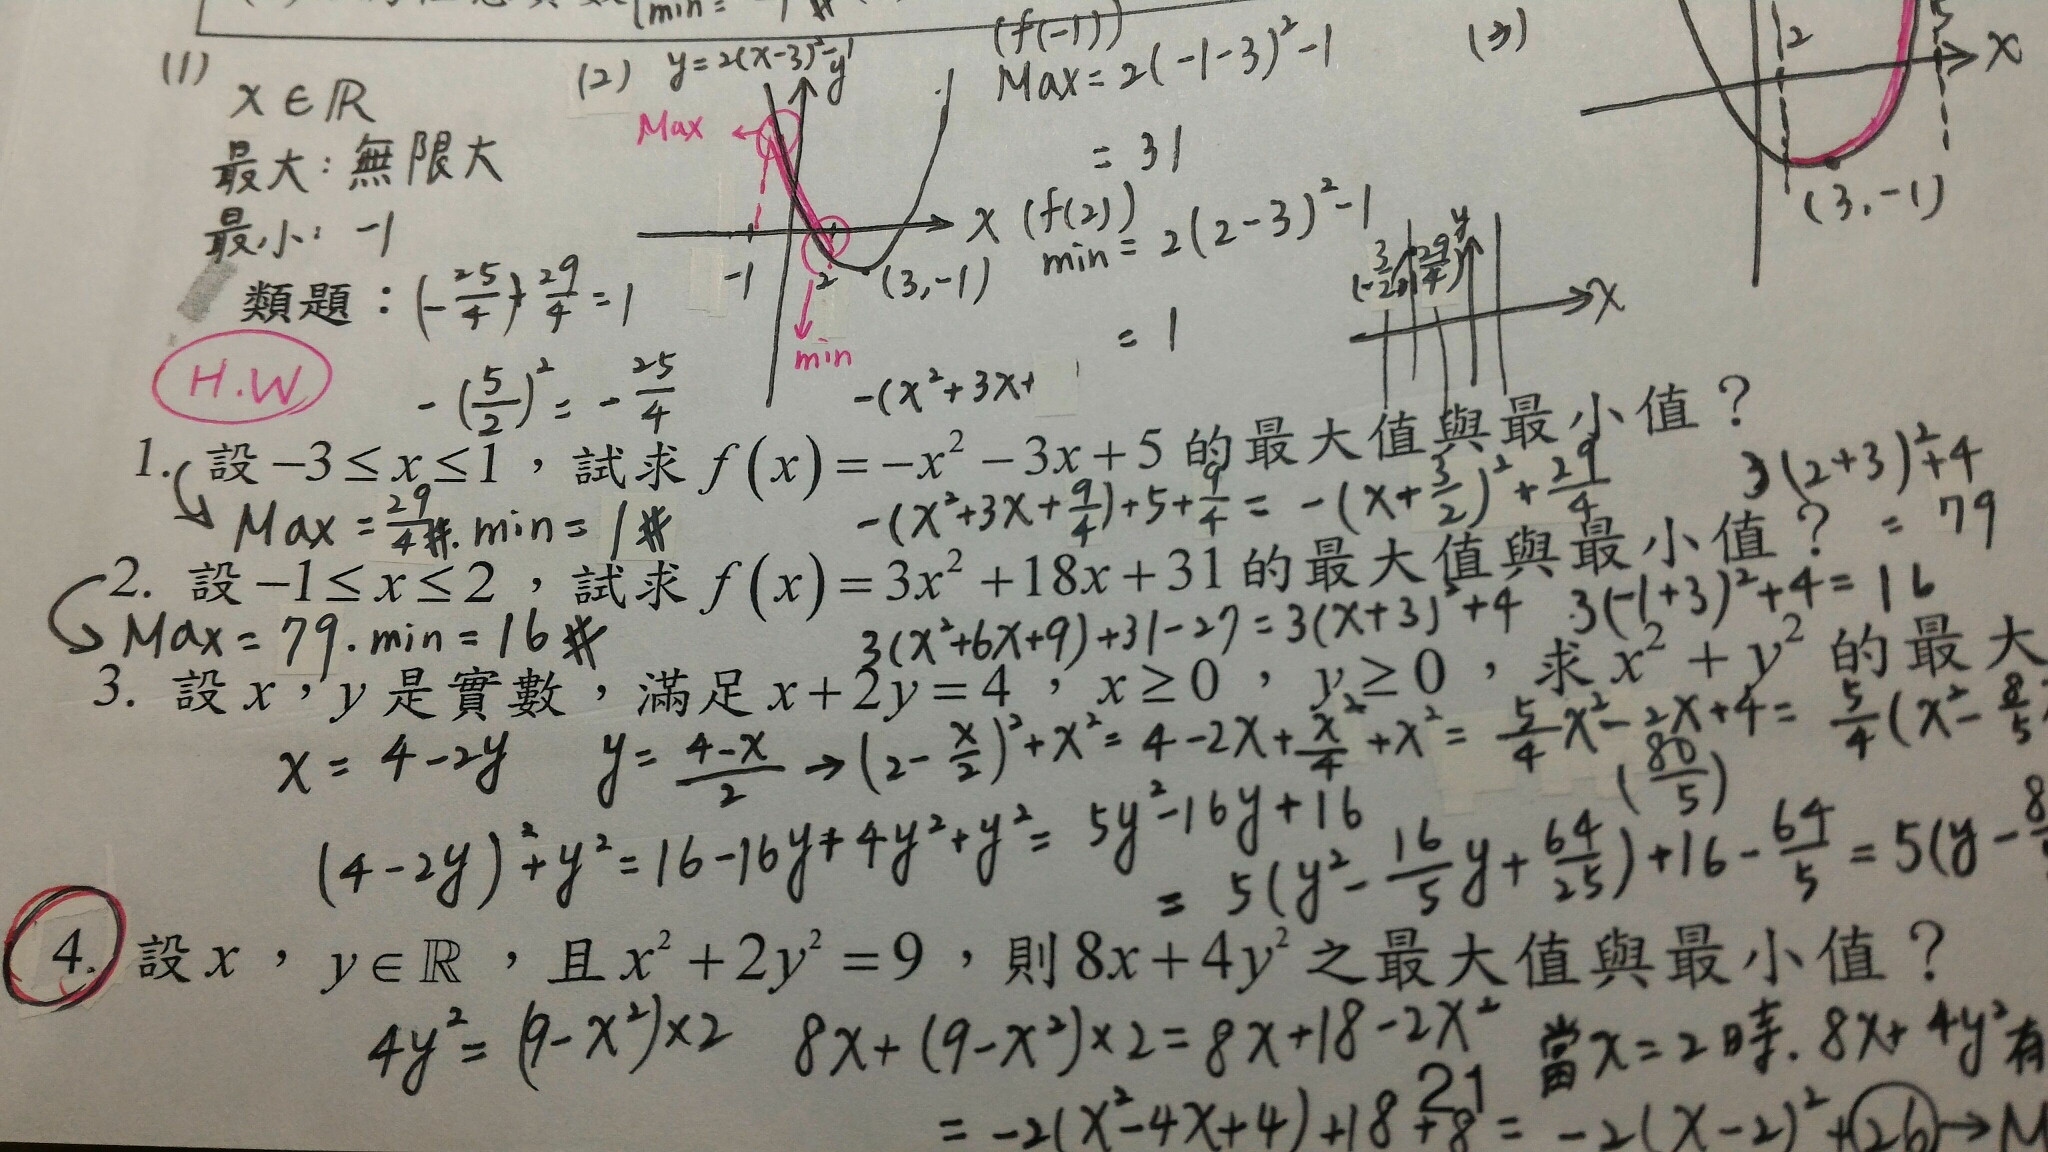 min =
(1)
x ∈ ℝ
最大：無限大
最小：-1
類題：(-25/4)+29/4=1
(2) y=2(x-3)²-1
y
Max
x
-1
2
(3,-1)
min
(f(-1))
Max=2(-1-3)²-1
=31
(f(2))
min=2(2-3)²-1
=1
(3)
2
5
x
(3,-1)
(-3/2, 29/4)
y
x
H.W
-(5/2)²=-25/4
-(x²+3x+
1. 設 -3≤x≤1，試求 f(x)=-x²-3x+5 的最大值與最小值？
Max=29/4#. min=1#
-(x²+3x+9/4)+5+9/4=-(x+3/2)²+29/4
3(2+3)²+4
=79
2. 設 -1≤x≤2，試求 f(x)=3x²+18x+31 的最大值與最小值？
Max=79. min=16#
3(x²+6x+9)+31-27=3(x+3)²+4
3(-1+3)²+4=16
3. 設 x，y 是實數，滿足 x+2y=4，x≥0，y≥0，求 x²+y² 的最大
x=4-2y y=4-x/2→(2-x/2)²+x²=4-2x+x²/4+x²=5/4x²-2x+4=5/4(x²-8/5
(80/5)
(4-2y)²+y²=16-16y+4y²+y²=5y²-16y+16
=5(y²-16/5y+64/25)+16-64/5=5(y-8
4. 設 x，y∈ℝ，且 x²+2y²=9，則 8x+4y² 之最大值與最小值？
4y²=(9-x²)×2 8x+(9-x²)×2=8x+18-2x² 當x=2時. 8x+4y²有
21
=-2(x²-4x+4)+18+8=-2(x-2)²+26→M